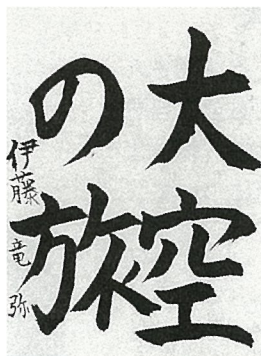 大空
の旅
伊藤竜弥